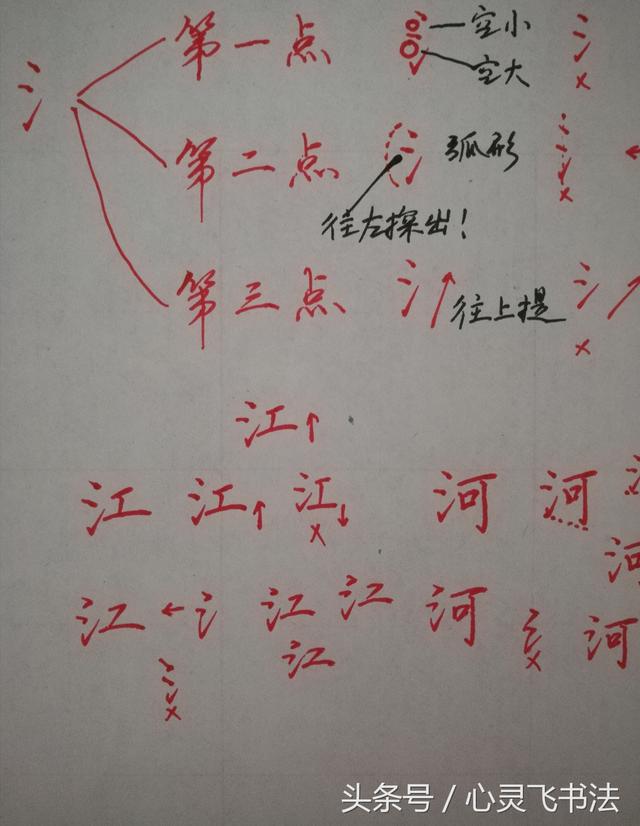 氵 第一点 氵 空小 氵×
空大
第二点 氵 弧形 氵×
往左探出！
第三点 氵 往上提 氵×
江
江 江 江 × 河 河
河
江 氵 江 江 河 氵× 河
江
氵×
头条号 / 心灵飞书法